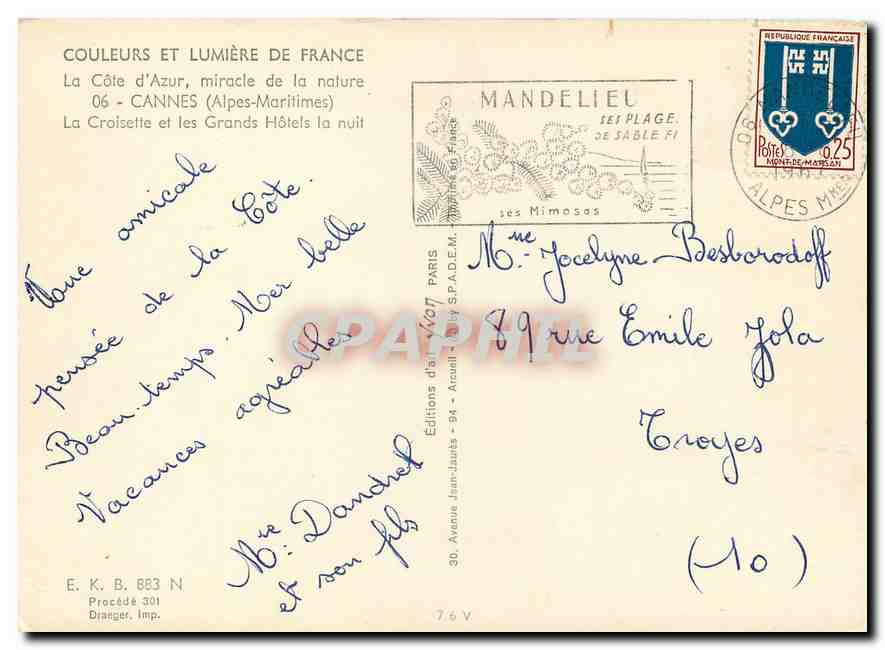 COULEURS ET LUMIÈRE DE FRANCE
La Côte d'Azur, miracle de la nature
06 - CANNES (Alpes-Maritimes)
La Croisette et les Grands Hôtels la nuit
Une amicale
pensée de la Côte.
Beau temps. Mer belle
Vacances agréables
Mme Dandrel
et son fils
E. K. B. 883 N
Procédé 301
Draeger, Imp.
7 6 V
Éditions d'art YVON PARIS
30, Avenue Jean-Jaurès - 94 - Arcueil
by S.P.A.D.E.M. - Imprimé en France
MANDELIEU
SES PLAGE
DE SABLE FI
ses Mimosas
REPUBLIQUE FRANÇAISE
POSTES 0,25
MONT-DE-MARSAN
06
ALPES MMES
Mme Jocelyne Besborodoff
89 rue Emile Zola
Troyes
(10)
CPAPHIL